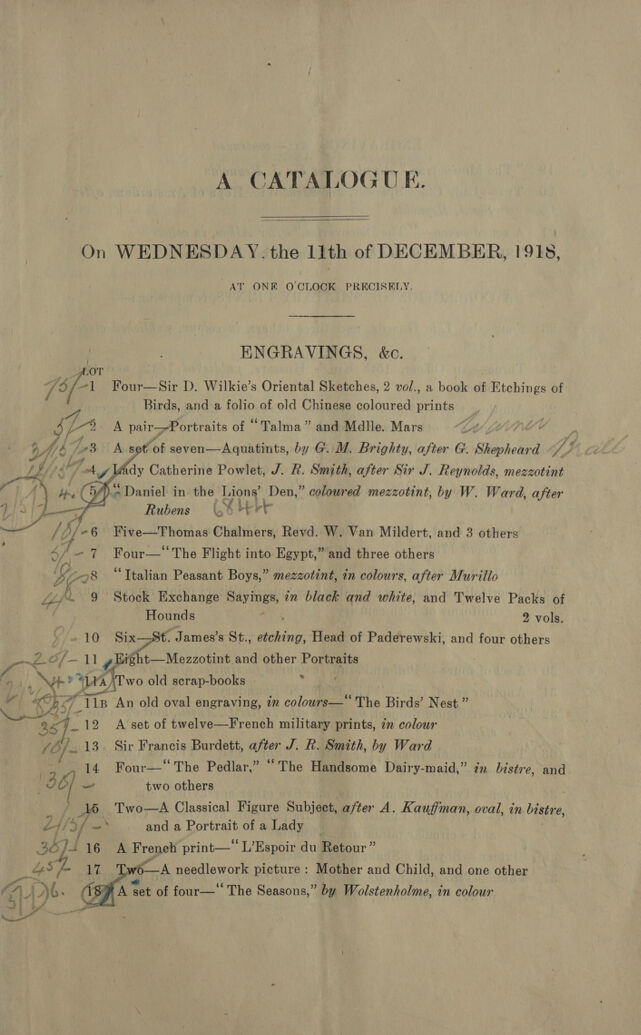 A CATALOGUE.
On WEDNESDAY, the 11th of DECEMBER, 1918,
AT ONE O'CLOCK PRECISELY.
ENGRAVINGS, &c.
LOT
1 Four—Sir D. Wilkie's Oriental Sketches, 2 vol., a book of Etchings of
Birds, and a folio of old Chinese coloured prints
2 A pair—Portraits of "Talma" and Mdlle. Mars
3 A set of seven—Aquatints, by G. M. Brighty, after G. Shepheard
4 Lady Catherine Powlet, J. R. Smith, after Sir J. Reynolds, mezzotint
5 "Daniel in the Lions' Den," coloured mezzotint, by W. Ward, after
Rubens
6 Five—Thomas Chalmers, Revd. W. Van Mildert, and 3 others
7 Four—"The Flight into Egypt," and three others
8 "Italian Peasant Boys," mezzotint, in colours, after Murillo
9 Stock Exchange Sayings, in black and white, and Twelve Packs of
Hounds 2 vols.
10 Six—St. James's St., etching, Head of Paderewski, and four others
11 Eight—Mezzotint and other Portraits
11A Two old scrap-books
11B An old oval engraving, in colours—"The Birds' Nest"
12 A set of twelve—French military prints, in colour
13 Sir Francis Burdett, after J. R. Smith, by Ward
14 Four—"The Pedlar," "The Handsome Dairy-maid," in bistre, and
two others
15 Two—A Classical Figure Subject, after A. Kauffman, oval, in bistre,
and a Portrait of a Lady
16 A French print—"L'Espoir du Retour"
17 Two—A needlework picture: Mother and Child, and one other
18 A set of four—"The Seasons," by Wolstenholme, in colour